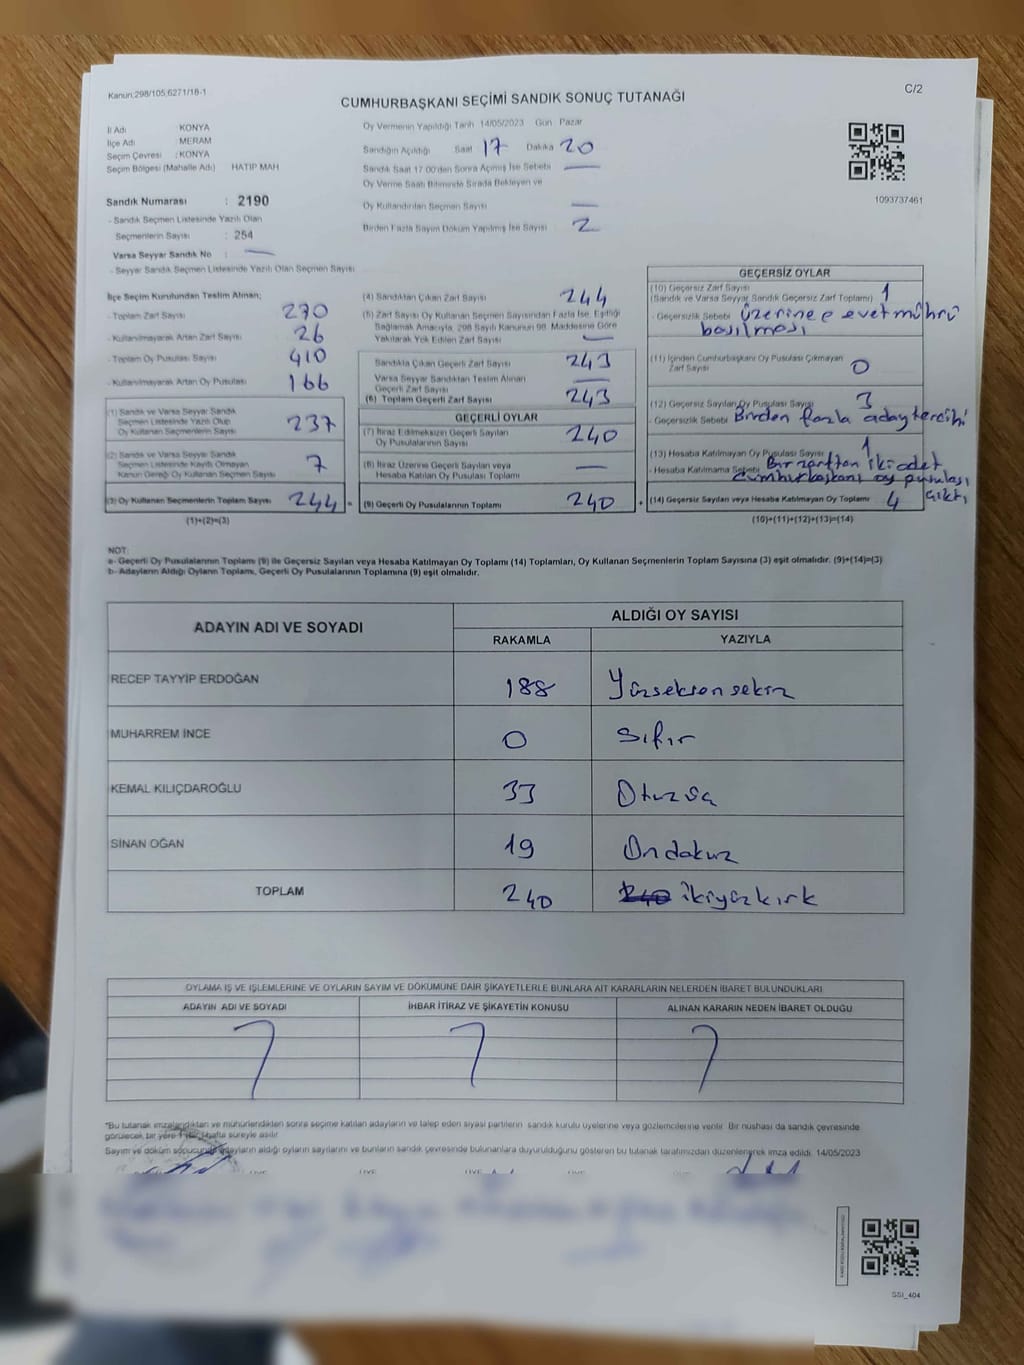 Kanun:298/105;6271/18-1
C/2
CUMHURBAŞKANI SEÇİMİ SANDIK SONUÇ TUTANAĞI
İl Adı : KONYA
İlçe Adı : MERAM
Seçim Çevresi : KONYA
Seçim Bölgesi (Mahalle Adı) HATIP MAH
Sandık Numarası : 2190
- Sandık Seçmen Listesinde Yazılı Olan
Seçmenlerin Sayısı : 254
Varsa Seyyar Sandık No : —
- Seyyar Sandık Seçmen Listesinde Yazılı Olan Seçmen Sayısı
Oy Vermenin Yapıldığı Tarih 14/05/2023 Gün Pazar
Sandığın Açıldığı Saat 17 Dakika 20
Sandık Saat 17:00'den Sonra Açılmış İse Sebebi —
Oy Verme Saati Bitiminde Sırada Bekleyen ve
Oy Kullandırılan Seçmen Sayısı —
Birden Fazla Sayım Döküm Yapılmış İse Sayısı 2
1093737461
İlçe Seçim Kurulundan Teslim Alınan;
- Toplam Zarf Sayısı 270
- Kullanılmayarak Artan Zarf Sayısı 26
- Toplam Oy Pusulası Sayısı 410
- Kullanılmayarak Artan Oy Pusulası 166
(1) Sandık ve Varsa Seyyar Sandık
Seçmen Listesinde Yazılı Olup
Oy Kullanan Seçmenlerin Sayısı 237
(2) Sandık ve Varsa Seyyar Sandık
Seçmen Listesinde Kayıtlı Olmayan
Kanun Gereği Oy Kullanan Seçmen Sayısı 7
(3) Oy Kullanan Seçmenlerin Toplam Sayısı 244 =
(1)+(2)=(3)
(4) Sandıktan Çıkan Zarf Sayısı 244
(5) Zarf Sayısı Oy Kullanan Seçmen Sayısından Fazla İse, Eşitliği
Sağlamak Amacıyla, 298 Sayılı Kanunun 98. Maddesine Göre
Yakılarak Yok Edilen Zarf Sayısı —
Sandıkta Çıkan Geçerli Zarf Sayısı 243
Varsa Seyyar Sandıktan Teslim Alınan
Geçerli Zarf Sayısı —
(6) Toplam Geçerli Zarf Sayısı 243
GEÇERLİ OYLAR
(7) İtiraz Edilmeksizin Geçerli Sayılan
Oy Pusulalarının Sayısı 240
(8) İtiraz Üzerine Geçerli Sayılan veya
Hesaba Katılan Oy Pusulaları Toplamı —
(9) Geçerli Oy Pusulalarının Toplamı 240 +
GEÇERSİZ OYLAR
(10) Geçersiz Zarf Sayısı 1
(Sandık ve Varsa Seyyar Sandık Geçersiz Zarf Toplamı)
- Geçersizlik Sebebi üzerine evet mührü
basılması
(11) İçinden Cumhurbaşkanı Oy Pusulası Çıkmayan
Zarf Sayısı 0
(12) Geçersiz Sayılan Oy Pusulası Sayısı 3
- Geçersizlik Sebebi Birden fazla aday tercihi
(13) Hesaba Katılmayan Oy Pusulası Sayısı 1
- Hesaba Katılmama Sebebi Bir zarftan iki adet
cumhurbaşkanı oy pusulası
çıktı
(14) Geçersiz Sayılan veya Hesaba Katılmayan Oy Toplamı 4
(10)+(11)+(12)+(13)=(14)
NOT:
a- Geçerli Oy Pusulalarının Toplamı (9) ile Geçersiz Sayılan veya Hesaba Katılmayan Oy Toplamı (14) Toplamları, Oy Kullanan Seçmenlerin Toplam Sayısına (3) eşit olmalıdır. (9)+(14)=(3)
b- Adayların Aldığı Oyların Toplamı, Geçerli Oy Pusulalarının Toplamına (9) eşit olmalıdır.
ADAYIN ADI VE SOYADI
ALDIĞI OY SAYISI
RAKAMLA YAZIYLA
RECEP TAYYİP ERDOĞAN 188 Yüzseksensekiz
MUHARREM İNCE 0 Sıfır
KEMAL KILIÇDAROĞLU 33 Otuzüç
SİNAN OĞAN 19 Ondokuz
TOPLAM 240 240 ikiyüzkırk
OYLAMA İŞ VE İŞLEMLERİNE VE OYLARIN SAYIM VE DÖKÜMÜNE DAİR ŞİKAYETLERLE BUNLARA AİT KARARLARIN NELERDEN İBARET BULUNDUKLARI
ADAYIN ADI VE SOYADI İHBAR İTİRAZ VE ŞİKAYETİN KONUSU ALINAN KARARIN NEDEN İBARET OLDUĞU
*Bu tutanak imzalandıktan ve mühürlendikten sonra seçime katılan adayların ve talep eden siyasi partilerin sandık kurulu üyelerine veya gözlemcilerine verilir. Bir nüshası da sandık çevresinde
görülecek bir yere 1 hafta süreyle asılır.
Sayım ve döküm sonucunda adayların aldığı oyların sayılarını ve bunların sandık çevresinde bulunanlara duyurulduğunu gösteren bu tutanak tarafımızdan düzenlenerek imza edildi. 14/05/2023
SSI_404